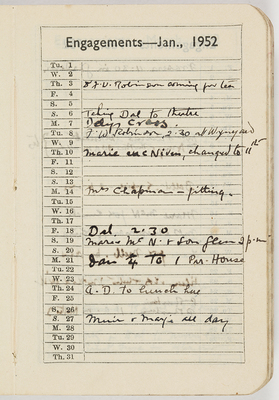 Engagements—Jan., 1952
Tu. 1
W. 2
Th. 3 F. W. Robinson coming for tea
F. 4
S. 5
S. 6 Taking Dal to Theatre
M. 7 Dal
Tu. 8 F W Robinson 2.30 at Wynyard
W. 9
Th. 10 Marie McNiven, changed to 11th
F. 11
S. 12
S. 13
M. 14 Mrs Chapman - fitting.
Tu. 15
W. 16
Th. 17
F. 18 Dal 2.30
S. 19 Marie Mc N. + 2 p.m
S. 20
M. 21 Par. House
Tu. 22
W. 23
Th. 24 A. D. to lunch here
F. 25
S. 26
S. 27 Muir + May's all day
M. 28
Tu. 29
W. 30
Th. 31